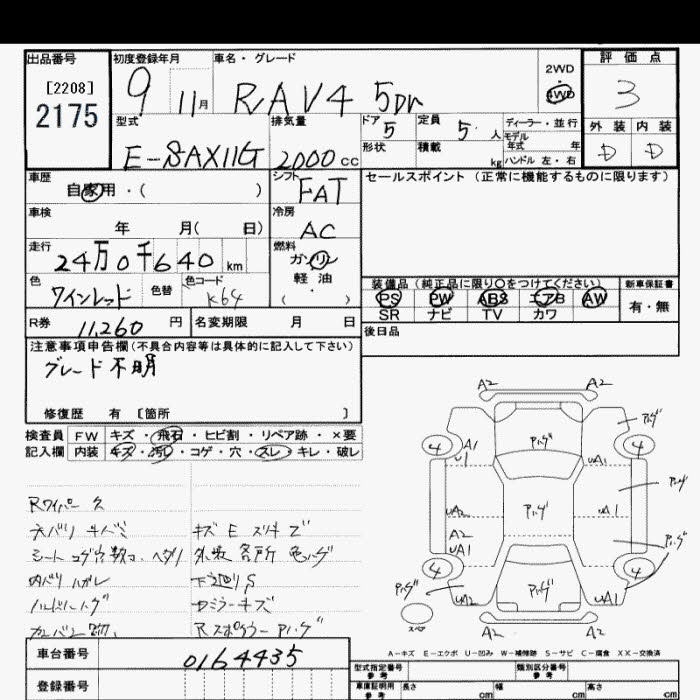 出品番号
[2208]
2175
初度登録年月
9 11月
車名・グレード
RAV4 5DR
2WD
4WD
評価点
3
型式
E-SAX11G
排気量
2000cc
ドア 5
定員 5 人
形状
積載 kg
ディーラー・並行
モデル年式 年
ハンドル 左・右
外装 内装
D D
車歴
自家用・( )
シフト
FAT
セールスポイント (正常に機能するものに限ります)
車検
年 月( 日)
冷房
AC
走行
24万0千640km
燃料
ガソリン
軽油
( ・ )
色
ワインレッド
色替
色コード
K64
装備品 (純正品に限り○をつけてください)
新車保証書
PS PW ABS エアB AW
有・無
SR ナビ TV カワ
R券 11,260円
名変期限 月 日
後日品
注意事項申告欄 (不具合内容等は具体的に記入して下さい)
グレード不明
修復歴 有 [箇所 ]
検査員 FW キズ・飛石・ヒビ割・リペア跡・×要
記入欄 内装 キズ・汚れ・コゲ・穴・スレ・キレ・破レ
Rワイパー欠
シート コゲ穴
キズ E
外装 各所 色ハゲ
内バリ ハガレ
下廻りS
ミラーキズ
Rスポイラー Pハゲ
A2 A2
Pハゲ Pハゲ
4 A1 4
U1 UA1
UA2 Pハゲ UA1 Pハゲ
A2
UA1 Pハゲ
4 4
Pハゲ Pハゲ
UA2 UA1
スペア
A2 A2
A-キズ E-エクボ U-凹み W-補修跡 S-サビ C-腐食 XX-交換済
車台番号 0164435
型式指定番号
参考
類別区分番号
参考
登録番号
車庫証明用
参考
長さ cm 幅 cm 高さ cm